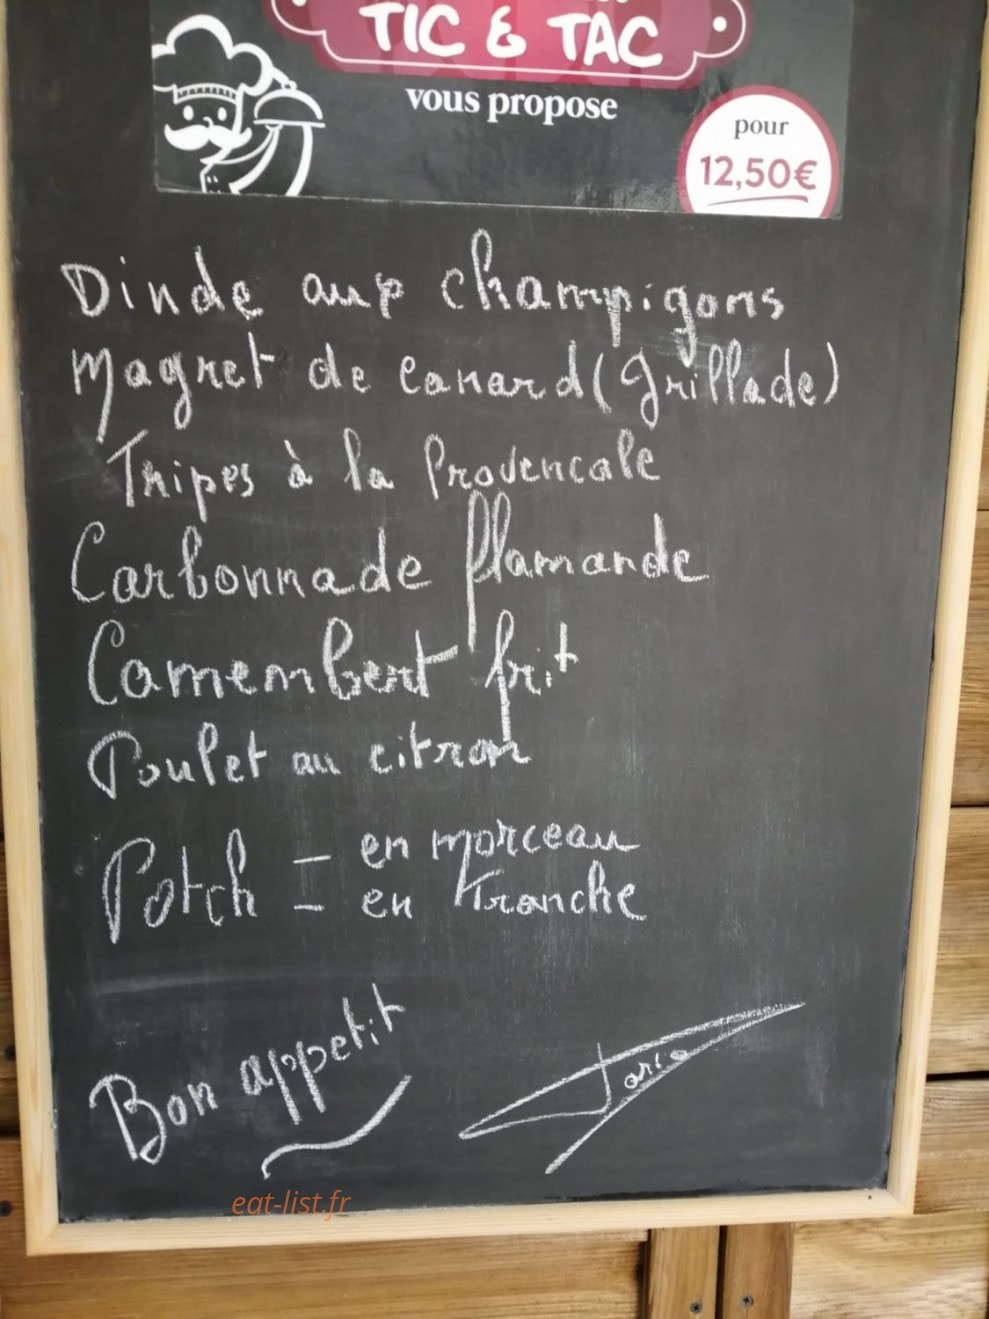 TIC & TAC
vous propose
pour
12,50€
Dinde aux champigons
Magret de canard (Grillade)
Tripes à la Provencale
Carbonnade flamande
Camembert frit
Poulet au citron
Potch - en morceau
- en Tranche
Bon appetit
eat-list.fr